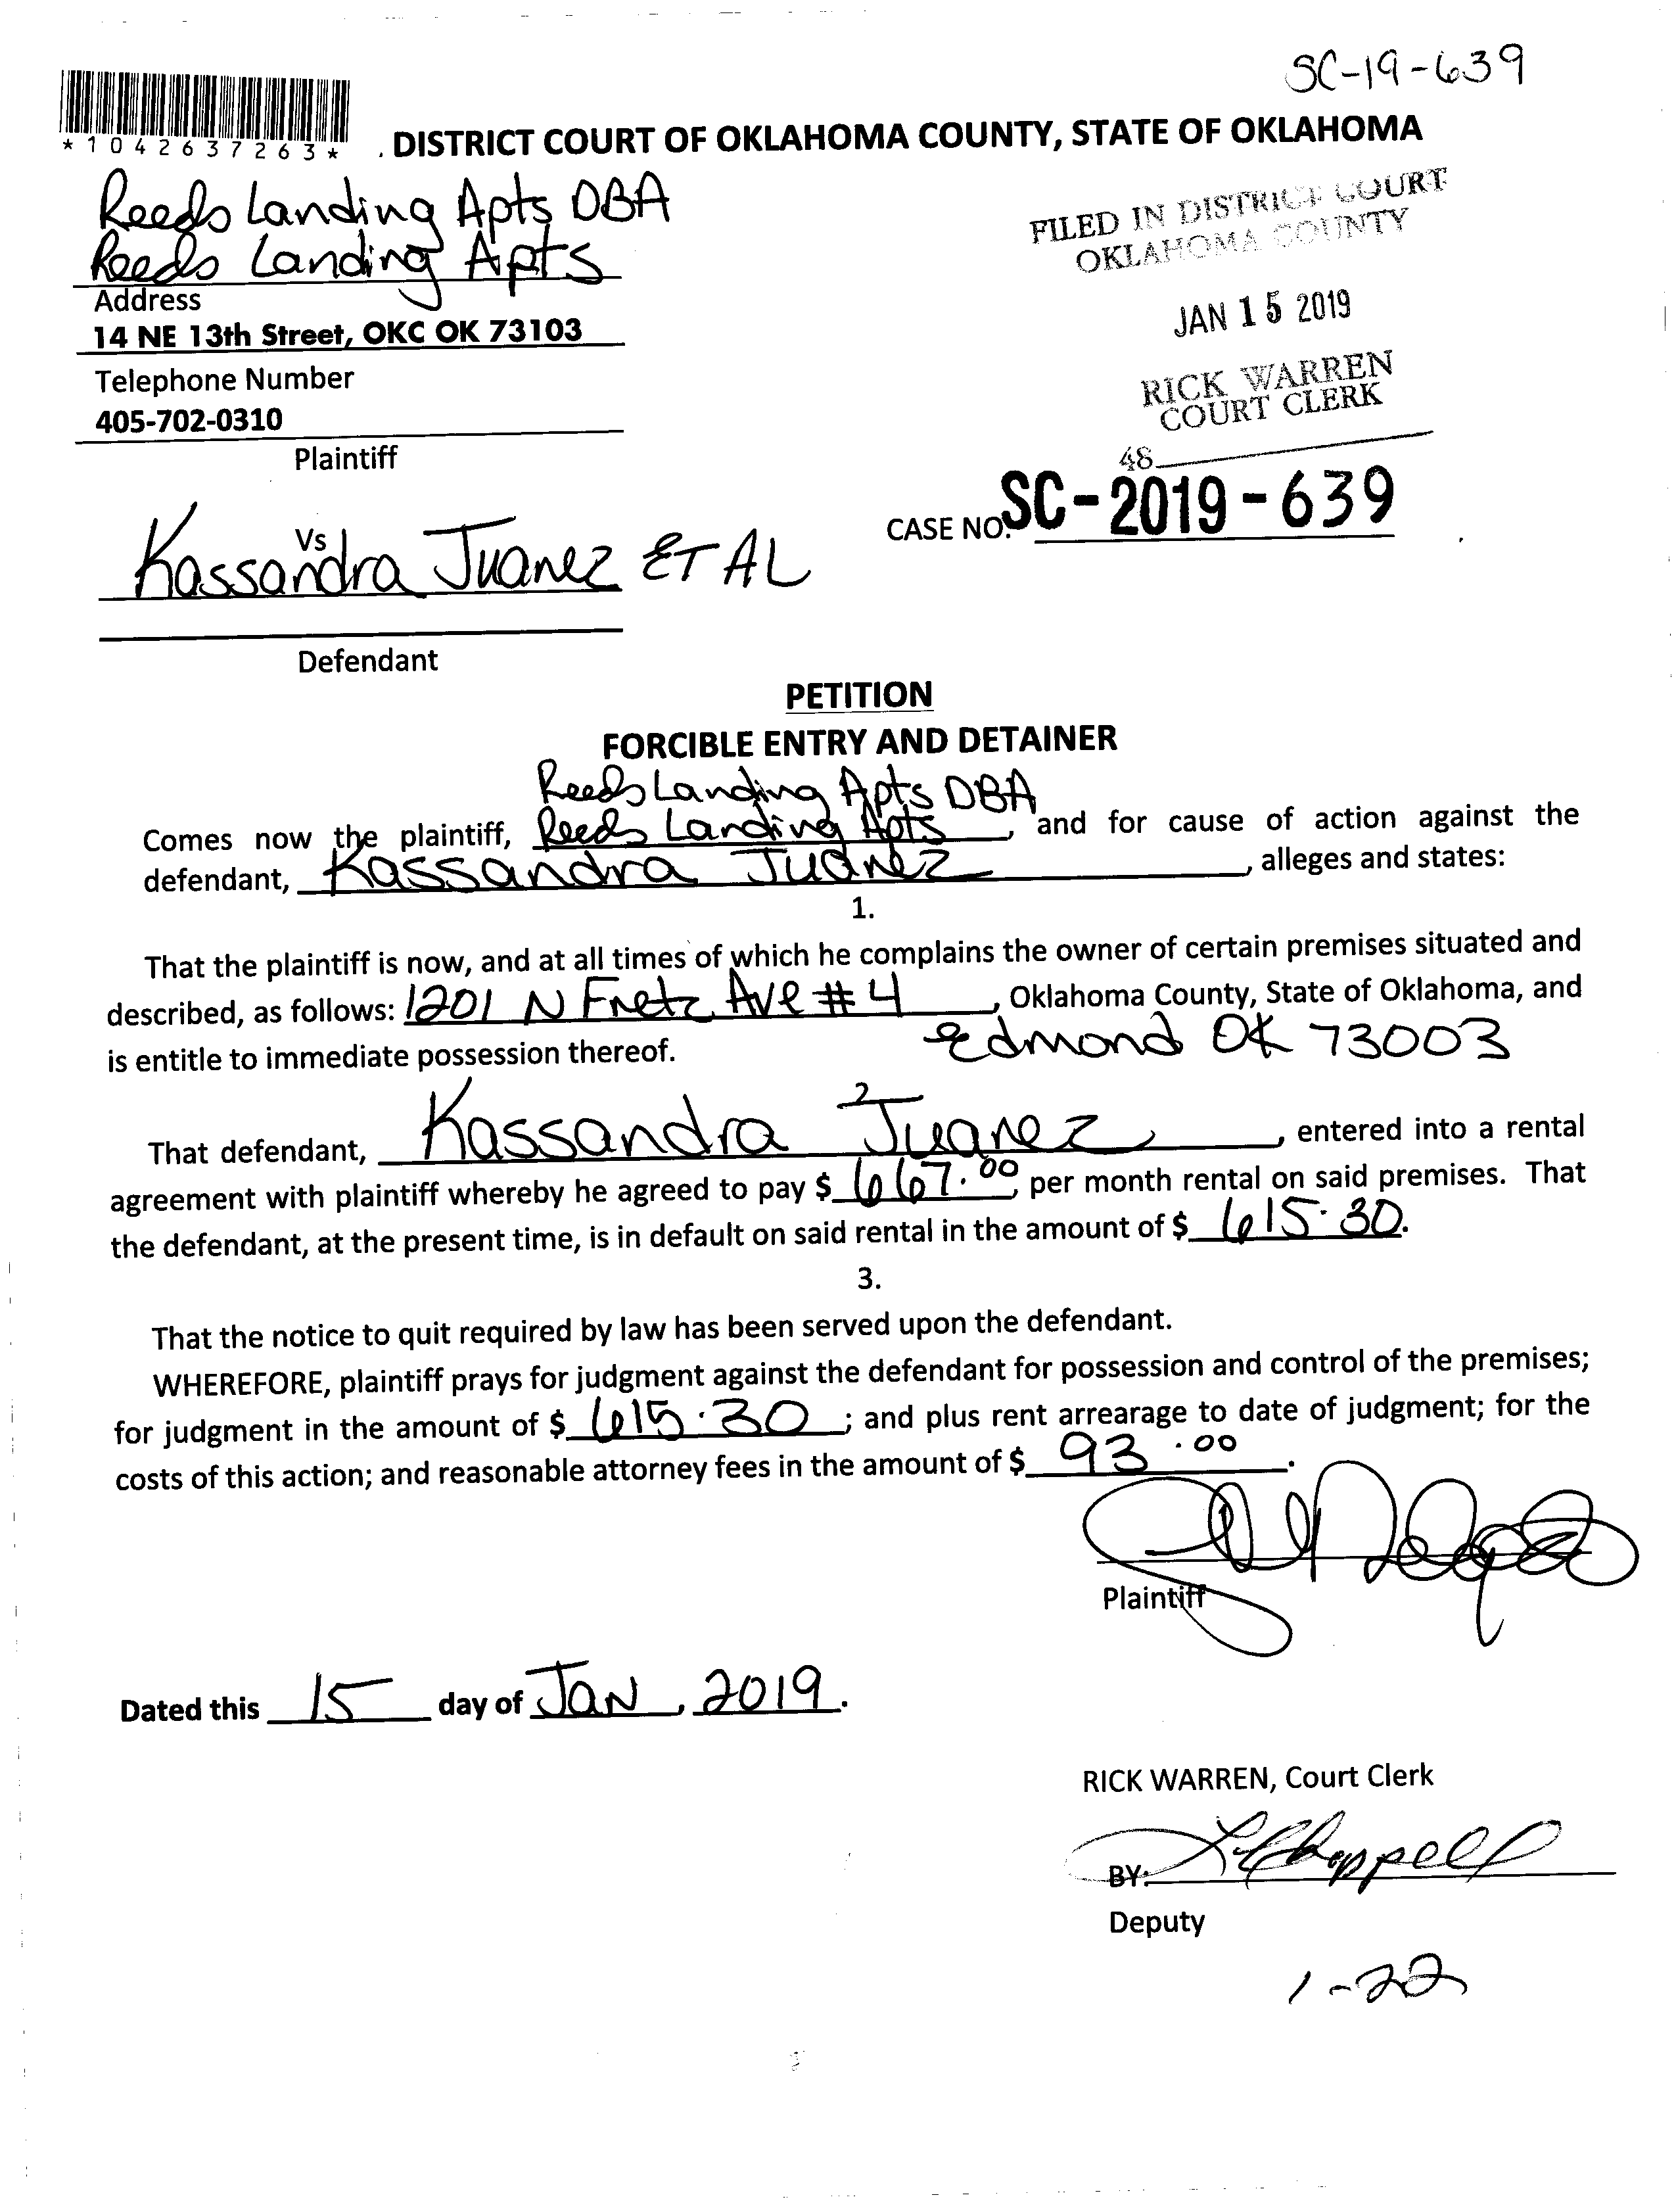 SC-19-639
*1042637263*
. DISTRICT COURT OF OKLAHOMA COUNTY, STATE OF OKLAHOMA
Reeds Landing Apts DBA
Reeds Landing Apts
Address
14 NE 13th Street, OKC OK 73103
Telephone Number
405-702-0310
Plaintiff
FILED IN DISTRICT COURT
OKLAHOMA COUNTY
JAN 15 2019
RICK WARREN
COURT CLERK
48
CASE NO. SC-2019-639
Vs
Kassandra Juarez ET AL
Defendant
PETITION
FORCIBLE ENTRY AND DETAINER
Reeds Landing Apts DBA
Comes now the plaintiff, Reeds Landing Apts, and for cause of action against the
defendant, Kassandra Juarez, alleges and states:
1.
That the plaintiff is now, and at all times of which he complains the owner of certain premises situated and
described, as follows: 1201 N Fretz Ave #4, Oklahoma County, State of Oklahoma, and
is entitle to immediate possession thereof. Edmond OK 73003
2
That defendant, Kassandra Juarez, entered into a rental
agreement with plaintiff whereby he agreed to pay $ 667.00, per month rental on said premises. That
the defendant, at the present time, is in default on said rental in the amount of $ 615.30.
3.
That the notice to quit required by law has been served upon the defendant.
WHEREFORE, plaintiff prays for judgment against the defendant for possession and control of the premises;
for judgment in the amount of $ 615.30; and plus rent arrearage to date of judgment; for the
costs of this action; and reasonable attorney fees in the amount of $ 93.00.
Plaintiff
Dated this 15 day of Jan, 2019.
RICK WARREN, Court Clerk
BY: Chappell
Deputy
1-22